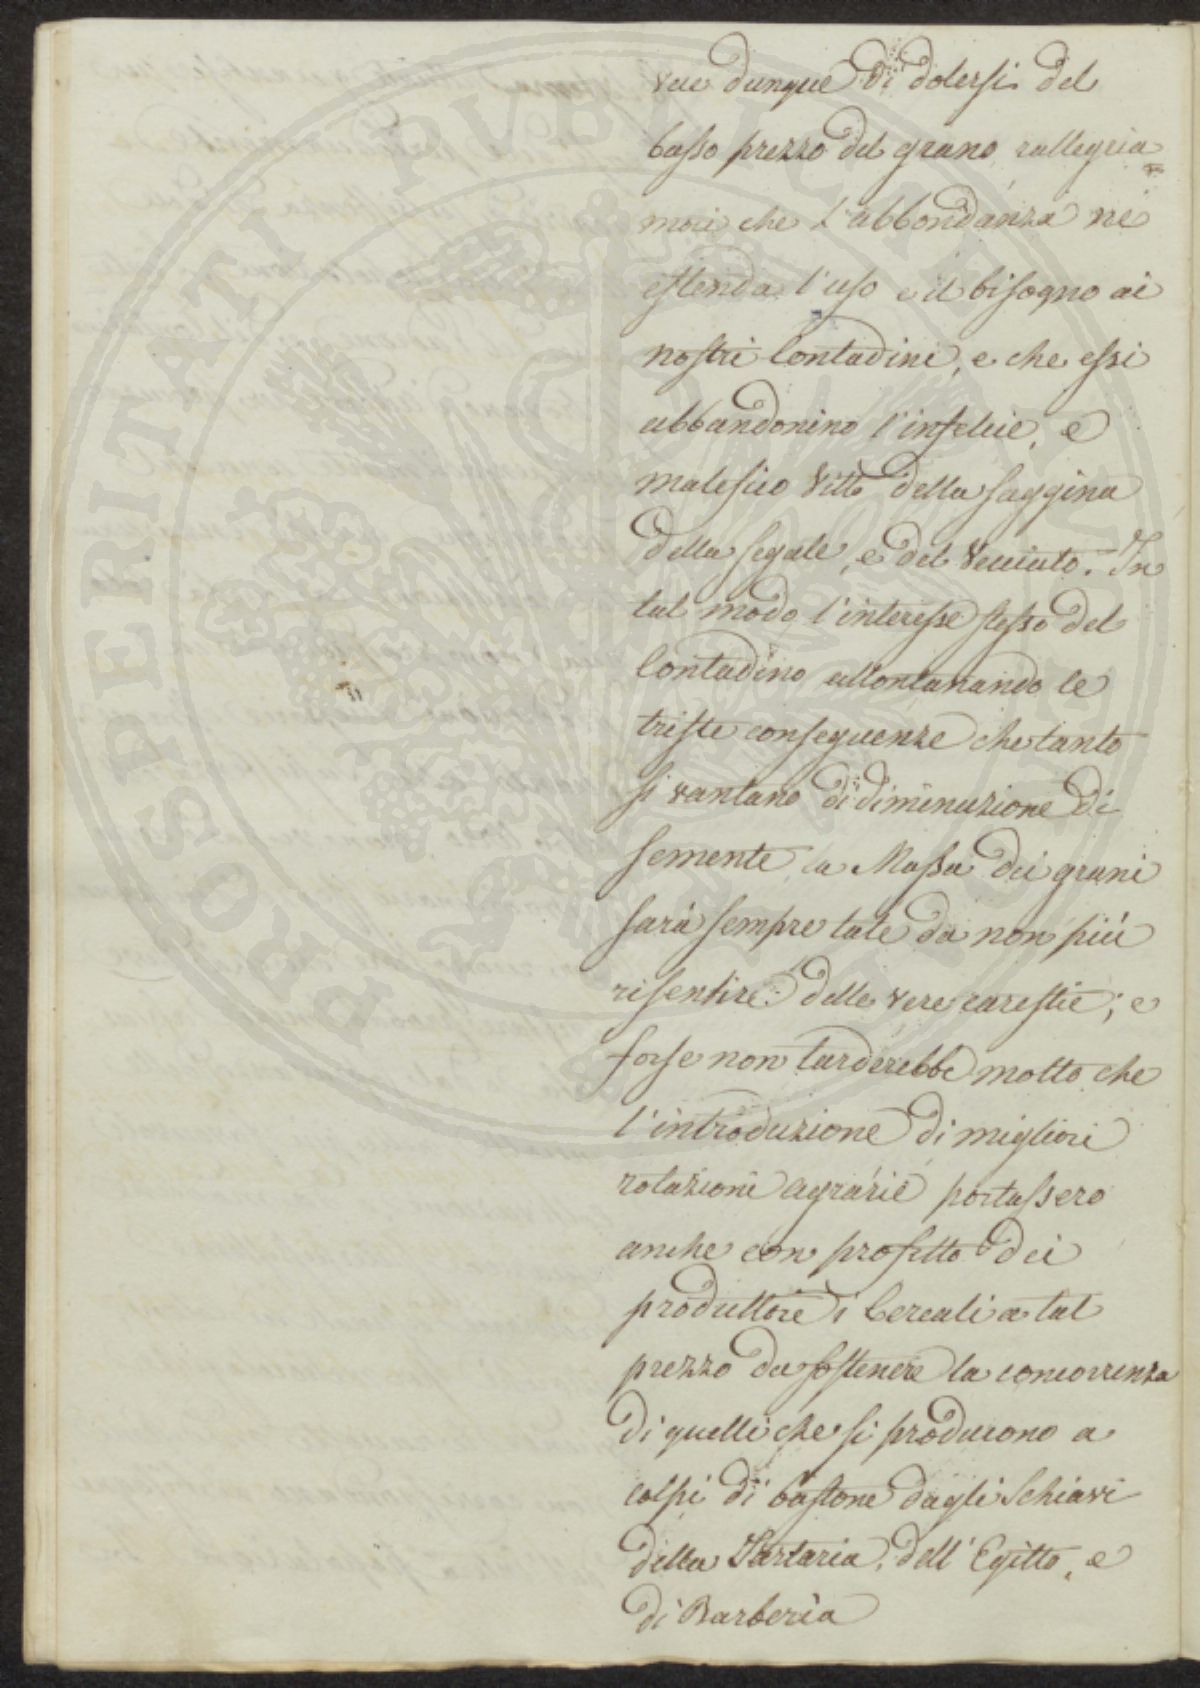 PROSPERITATI PVBLICAE AVGENDAE
vece dunque di dolersi del
basso prezzo del grano, rallegria=
moci che l'abbondanza ne
estenda l'uso e il bisogno ai
nostri Contadini, e che essi
abbandonino l'infelice, e
malefico Vitto della saggina
della segale, e del Vecciato. In
tal modo l'interesse stesso del
Contadino allontanando le
triste conseguenze che tanto
si vantano di diminuzione di
semente, la Massa dei grani
sarà sempre tale da non più
risentire delle vere carestie; e
forse non tarderebbe molto che
l'introduzione di migliori
rotazioni agrarie portassero
anche con profitto dei
produttori i Cereali a tal
prezzo da sostenere la concorrenza
di quelli che si producono a
colpi di bastone dagli Schiavi
della Tartaria, dell'Egitto, e
di Barberia